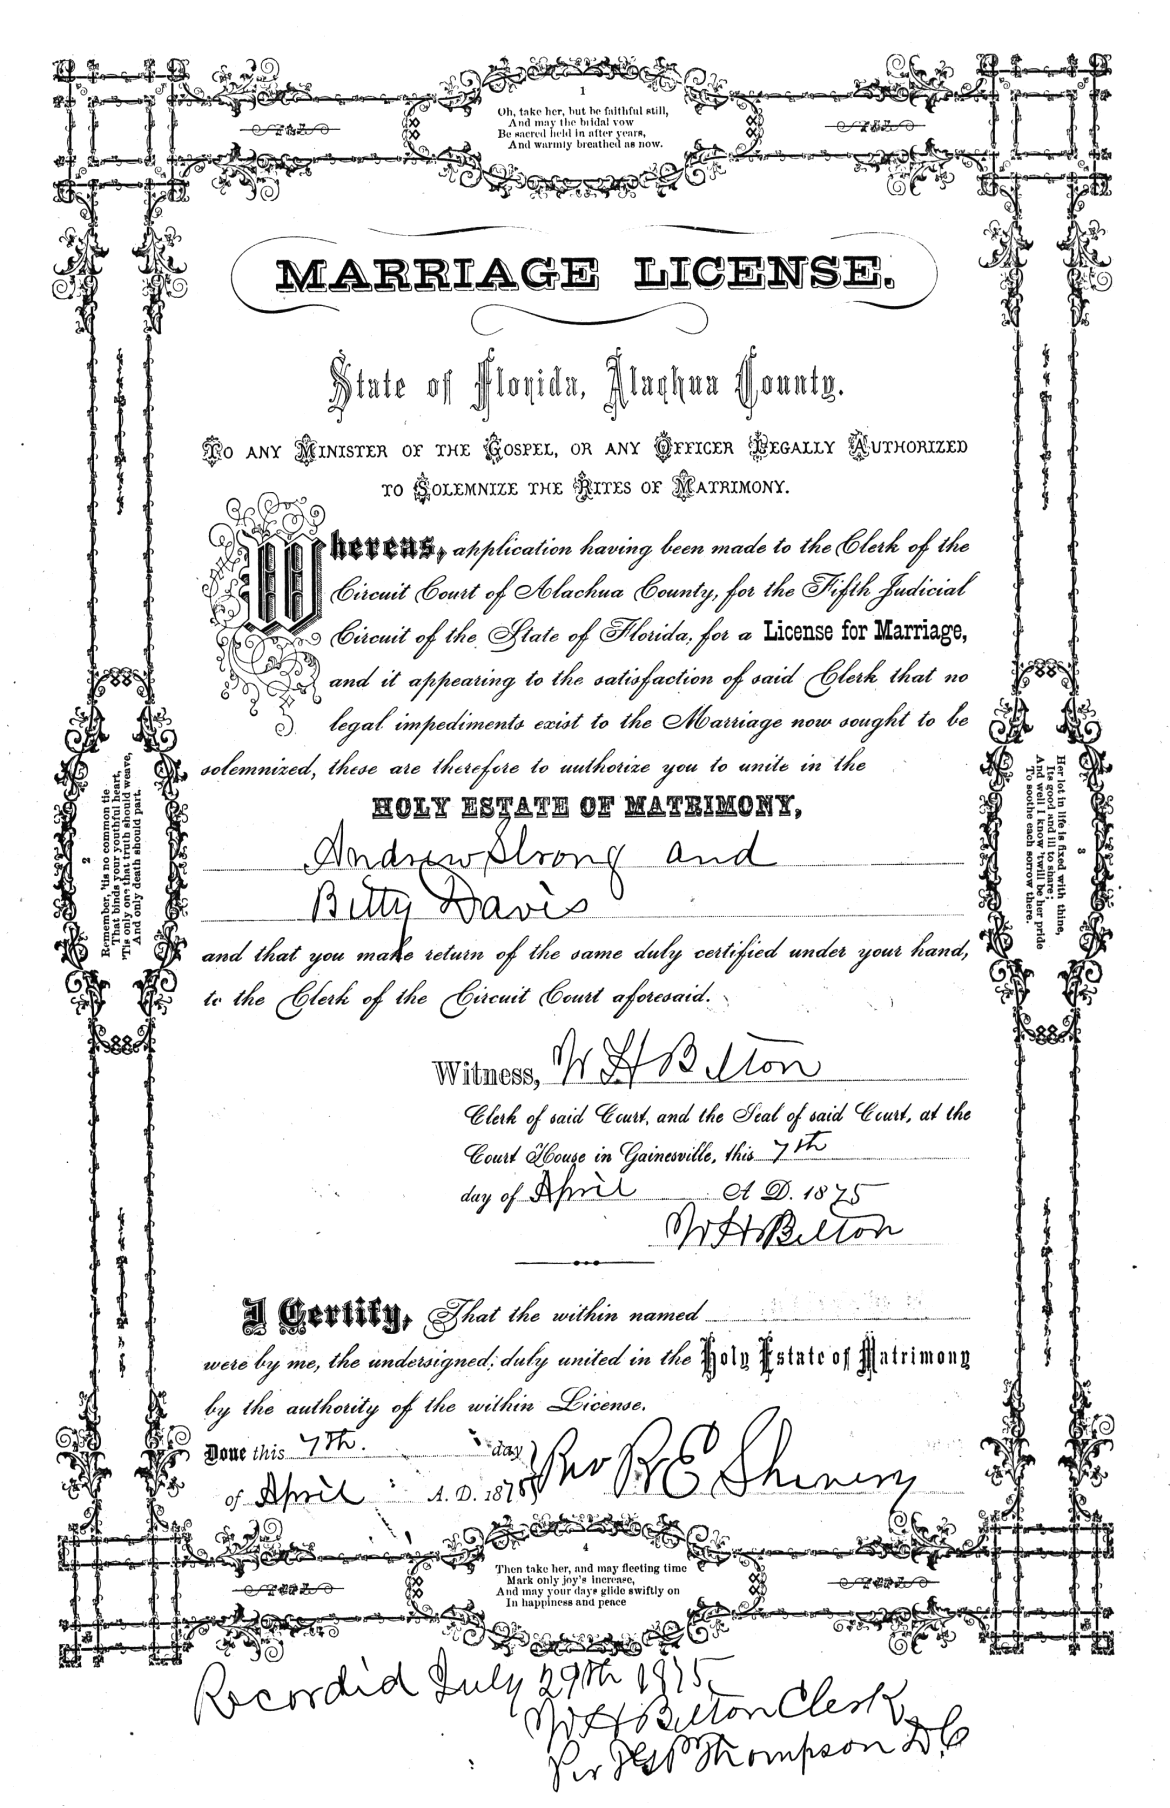 1
Oh, take her, but be faithful still,
And may the bridal vow
Be sacred held in after years,
And warmly breathed as now.
MARRIAGE LICENSE.
State of Florida, Alachua County.
TO ANY MINISTER OF THE GOSPEL, OR ANY OFFICER LEGALLY AUTHORIZED
TO SOLEMNIZE THE RITES OF MATRIMONY.
Whereas, application having been made to the Clerk of the
Circuit Court of Alachua County, for the Fifth Judicial
Circuit of the State of Florida, for a License for Marriage,
and it appearing to the satisfaction of said Clerk that no
legal impediments exist to the Marriage now sought to be
solemnized, these are therefore to authorize you to unite in the
HOLY ESTATE OF MATRIMONY,
Andrew Strong and
Bitty Davis
and that you make return of the same duly certified under your hand,
to the Clerk of the Circuit Court aforesaid.
2
Remember, 'tis no common tie
That binds your youthful heart,
'Tis only one that truth should weave,
And only death should part.
3
Her lot in life is fixed with thine,
Its good and ill to share;
And well I know 'twill be her pride
To soothe each sorrow there.
Witness, W H Belton
Clerk of said Court, and the Seal of said Court, at the
Court House in Gainesville, this 7th
day of April A. D. 1875
W H Belton
I Certify, That the within named
were by me, the undersigned, duly united in the Holy Estate of Matrimony
by the authority of the within License.
Done this 7th. day
of April A. D. 1875
Rev R E Shivery
4
Then take her, and may fleeting time
Mark only joy's increase,
And may your days glide swiftly on
In happiness and peace
Recordid July 29th 1875
W H Belton Clerk
Per Thompson D C